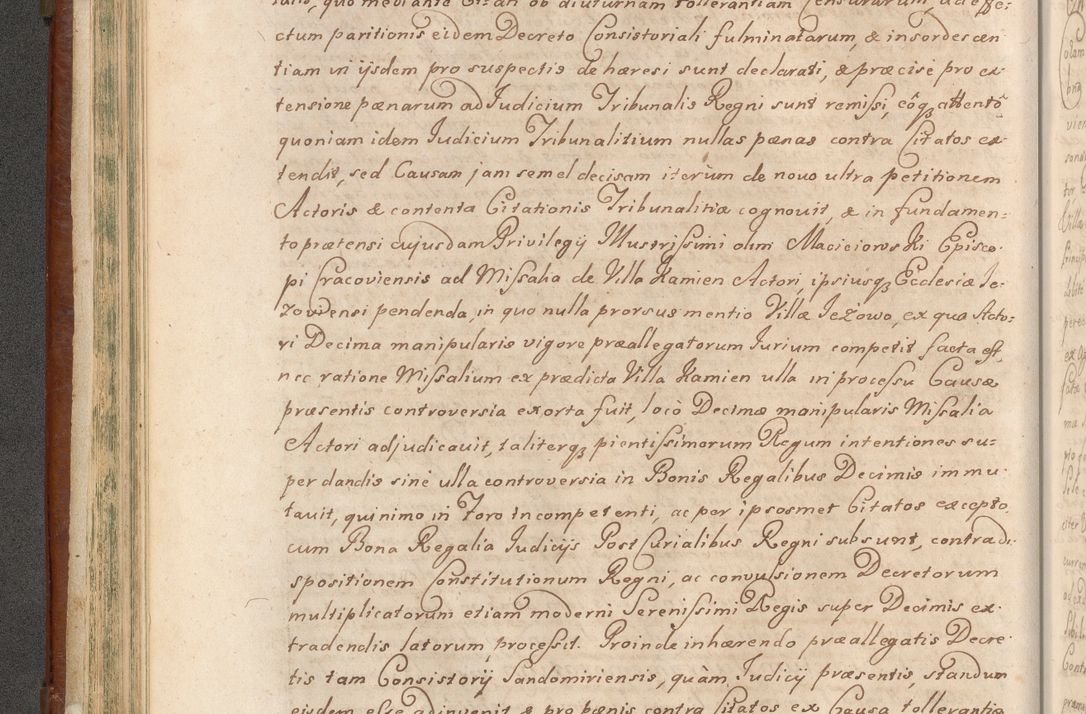 ctum paritionis eidem Decreto Consistoriali fulminatarum, & insordescen
tiam in ijsdem pro suspectis de hæresi sunt declarati, & præcisè pro ex-
tensione pœnarum ad Iudicium Tribunalis Regni sunt remissi, eôqꝫ attentô
quoniam idem Iudicium Tribunalitium nullas pœnas contra Citatos ex-
tendit, sed Causam jam semel decisam iterùm de novo ultra petitionem
Actoris & contenta Citationis Tribunalitiæ cognouit, & in fundamen=
to prætensi cujusdam Privilegij Illustrissimi olim Maciciows Ki Episco-
pi Cracoviensis ad Missalia de Villa Kamien Actori, ipsiusqꝫ Ecclesiæ Je-
zoviensi pendenda, in quo nulla prorsus mentio Villæ Jeżowo, ex qua Acto-
ri Decima manipularis vigore præallegatorum Iurium competit facta est,
nec ratione Missalium ex prædicta Villa Kamien ulla in processu Causæ
præsentis controversia exorta fuit, locò Decimæ manipularis Missalia
Actori adjudicauit, taliterqꝫ pientissimorum Regum intentiones su=
per dandis sinè ulla controversia in Bonis Regalibus Decimis immu-
tauit, quinimo in Foro incompetenti, ac per ipsosmet Citatos excepto,
cum Bona Regalia Iudicijs Post Curialibus Regni subsunt, contradi-
spositionem Constitutionum Regni, ac convulsionem Decretorum
multiplicatorum etiam moderni Serenissimi Regis super Decimis ex-
tradendis latorum, processit. Proinde inhærendo præallegatis Decre-
tis tam Consistorij Sandomiriensis, quàm Judicij præsentis, standum
eisdem esse adinvenit, & pro pœnis contra Citatos ex Causa tollerantia